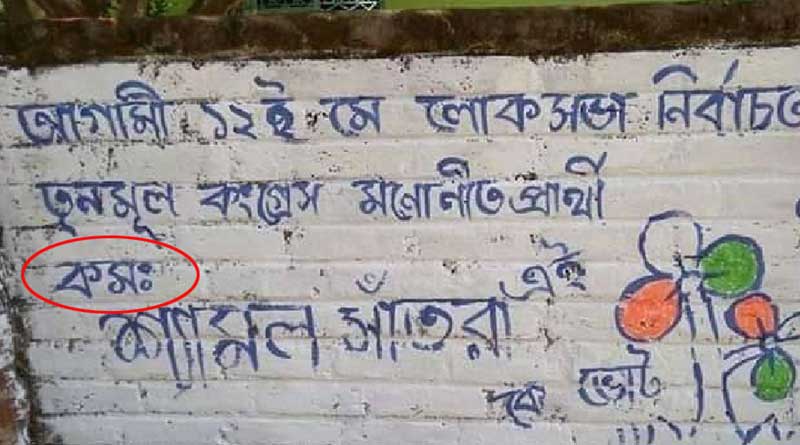 আগামী ১২ই মে লোকসভা নির্বাচন
তৃনমূল কংগ্রেস মনোনীত প্রার্থী
কমঃ
শ্যামল সাঁতরা এই
ভোট